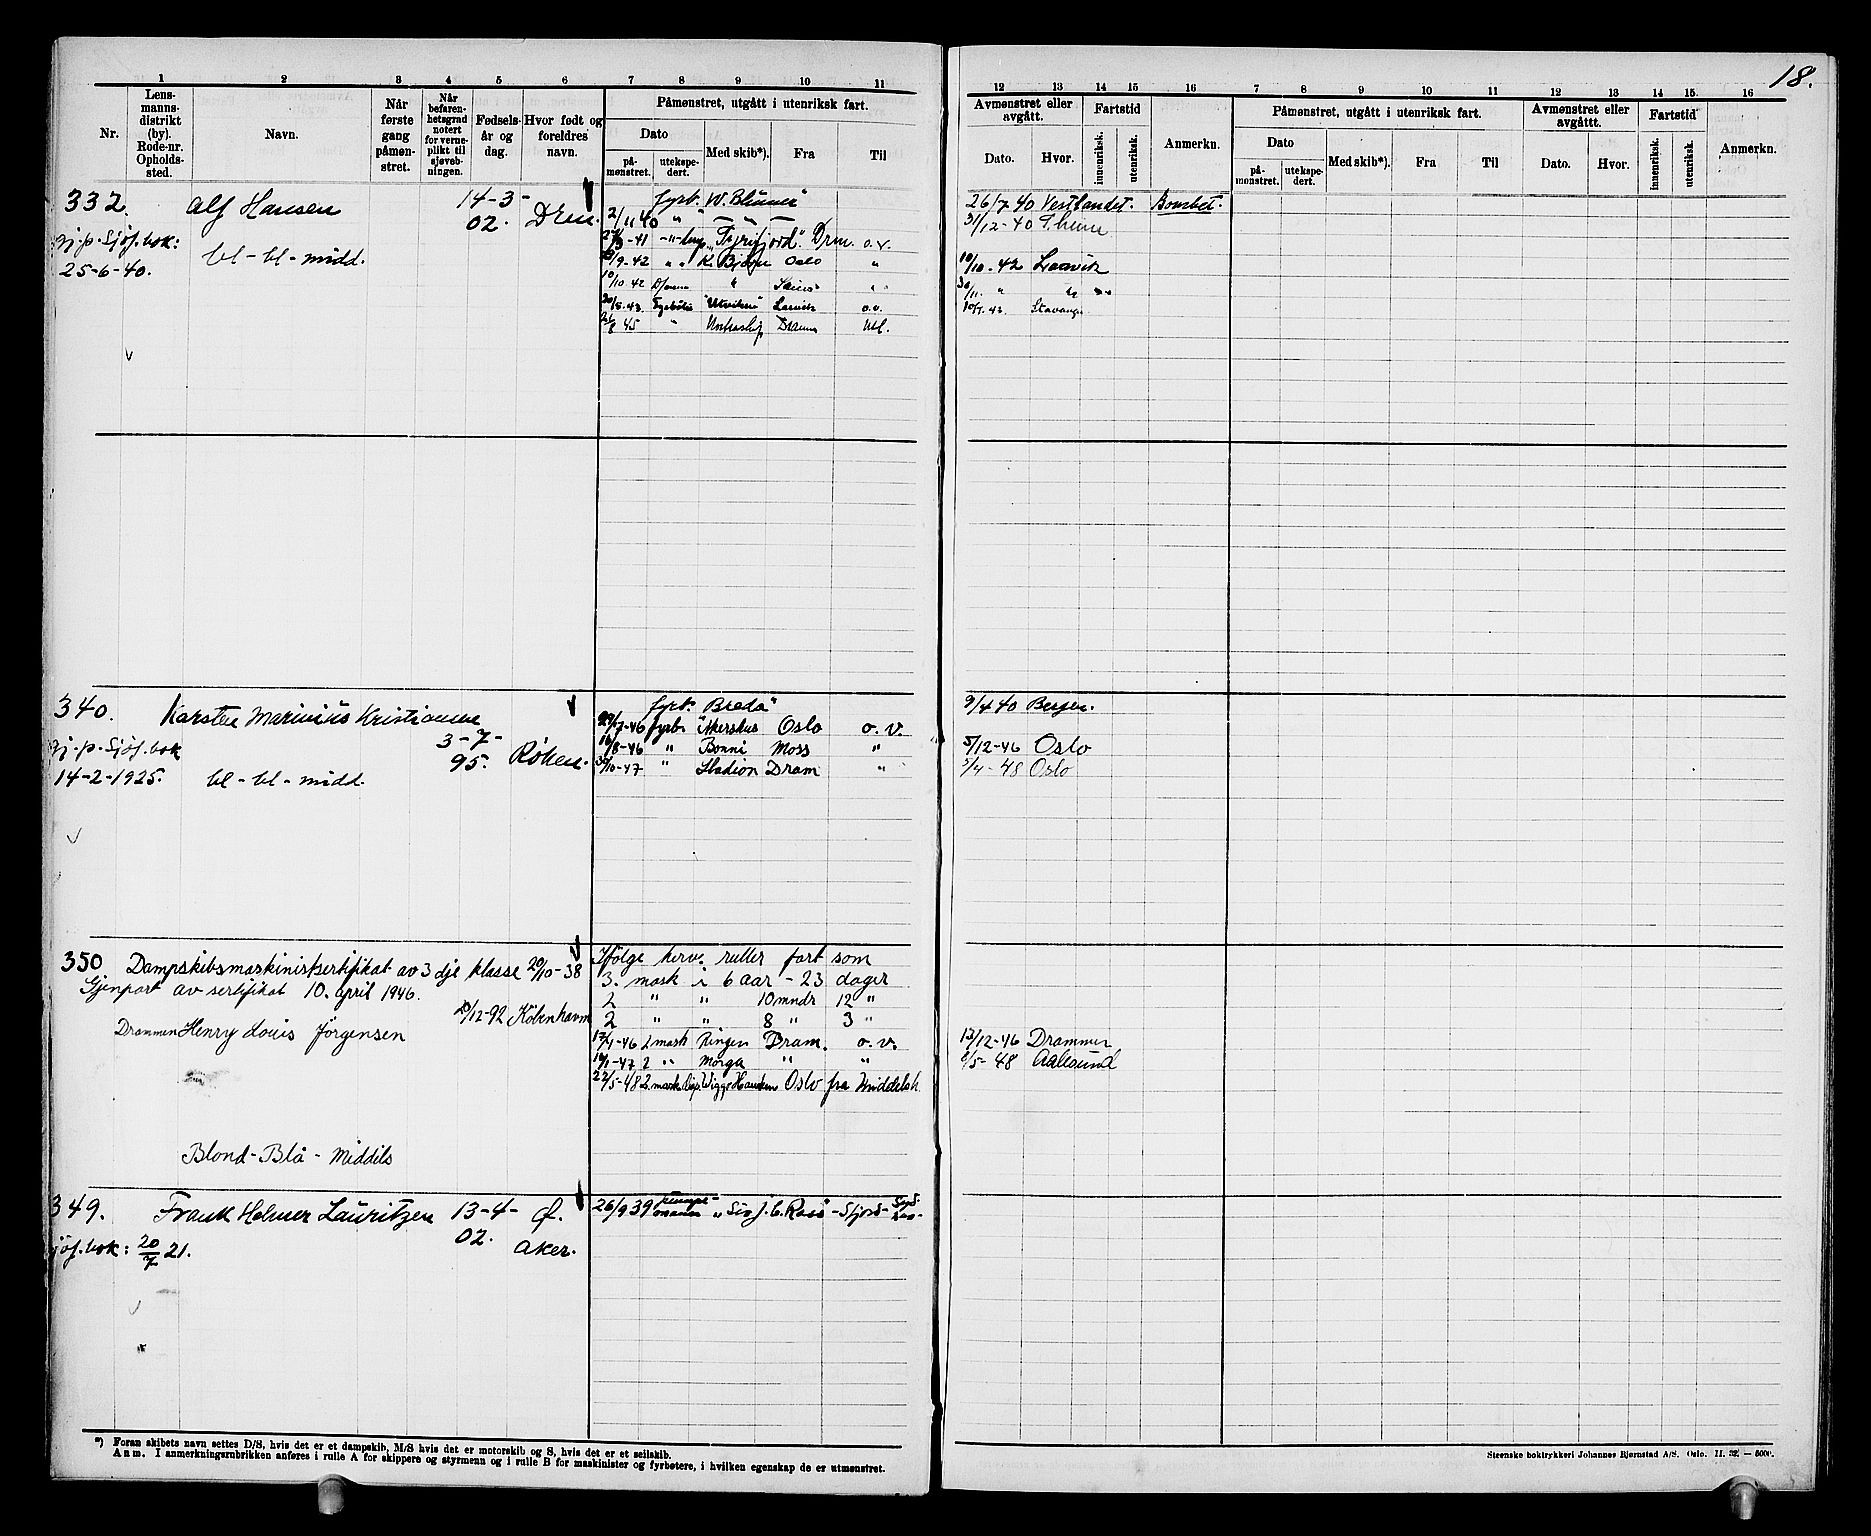 18.
1 2 3 4 5 6 7 8 9 10 11
Nr.
Lens-
manns-
distrikt
(by).
Rode-nr.
Opholds-
sted.
Navn.
Når
første
gang
påmøn-
stret.
Når
befaren-
hetsgrad
notert
for verne-
plikt til
sjøveb-
ningen.
Fødsels-
år og
dag.
Hvor født og
foreldres
navn.
Påmønstret, utgått i utenriksk fart.
Dato
på-
mønstret.
utekspe-
dert.
Med skib*).
Fra
Til
12 13 14 15 16 7 8 9 10 11 12 13 14 15. 16
Avmønstret eller
avgått.
Dato.
Hvor.
Fartstid
innenriksk.
utenriksk.
Anmerkn.
Påmønstret, utgått i utenriksk fart.
Dato
på-
mønstret.
utekspe-
dert.
Med skib*).
Fra
Til
Avmønstret eller
avgåttt.
Dato.
Hvor.
Fartstid
innenriksk.
utenriksk.
Anmerkn.
332. Alf Hansen 14-3-
02. Drm.
Gj.p. Sjöf.bok:
25-6-40.
bl-bl-midd.
fyrb. W. Blumer
2/11 40 " "
-41 "Tyrifjord". Drm. o.v.
/9-42 " " K. Bjørn Oslo "
10/10.42 "
Larvik o.v.
45 " Utl.
26/7 40 Vestlandet. Bombet.
31/12-40 T.heim
10/10.42 Larvik
30/11. " " "
43 Stavang.
340. Karsten Marinius Kristiansen
3-7-
95. Röken.
Gj.p. Sjöf.bok
14-2-1925.
bl-bl-midd.
fyrb. "Breda"
29/7-46 fyrb. "Akershus Oslo o.v.
16/8-46 " Bonni Moss "
30/10-47 " Stadion Dram "
9/4 40 Bergen.
5/12-46 Oslo
/4-48 Oslo
350 Dampskibsmaskinistsertifikat av 3dje klasse 20/10-38
Gjenpart av sertifikat 10. april 1946.
/12-92 Köbenhavn
Drammen Henry Louis Jörgensen
Blond-Blå-Middels
Ifölge herv. ruller fart som
3. mask i 6 aar - 23 dager
2 " " 10 mndr 12 "
2 " " 8 " 3 "
/4-46 2 mask Ringen Dram. o.v.
/1-47 2 " Morga " "
22/5-48 2. mask. Viggo Hansteen Oslo fra Middelsh.
13/12-46 Drammen
/5-48 Aalesund
349. Frank Helmer Lauritzen 13-4-
02. Ø.
Aker.
Sjöf.bok: 20/7 21.
26/9 39 pumpe-
mann "Sir J. C. Ross" - Sfjord - Syd-
*) Foran skibets navn settes D/S, hvis det er et dampskib, M/S hvis det er motorskib og S, hvis det er et seilskib.
Anm. I anmerkningsrubrikken anføres i rulle A for skippere og styrmenn og i rulle B for maskinister og fyrbøtere, i hvilken egenskap de er utmønstret.
Steenske boktrykkeri Johannes Bjørnstad A/S. Oslo. 11. 32. — 5000.